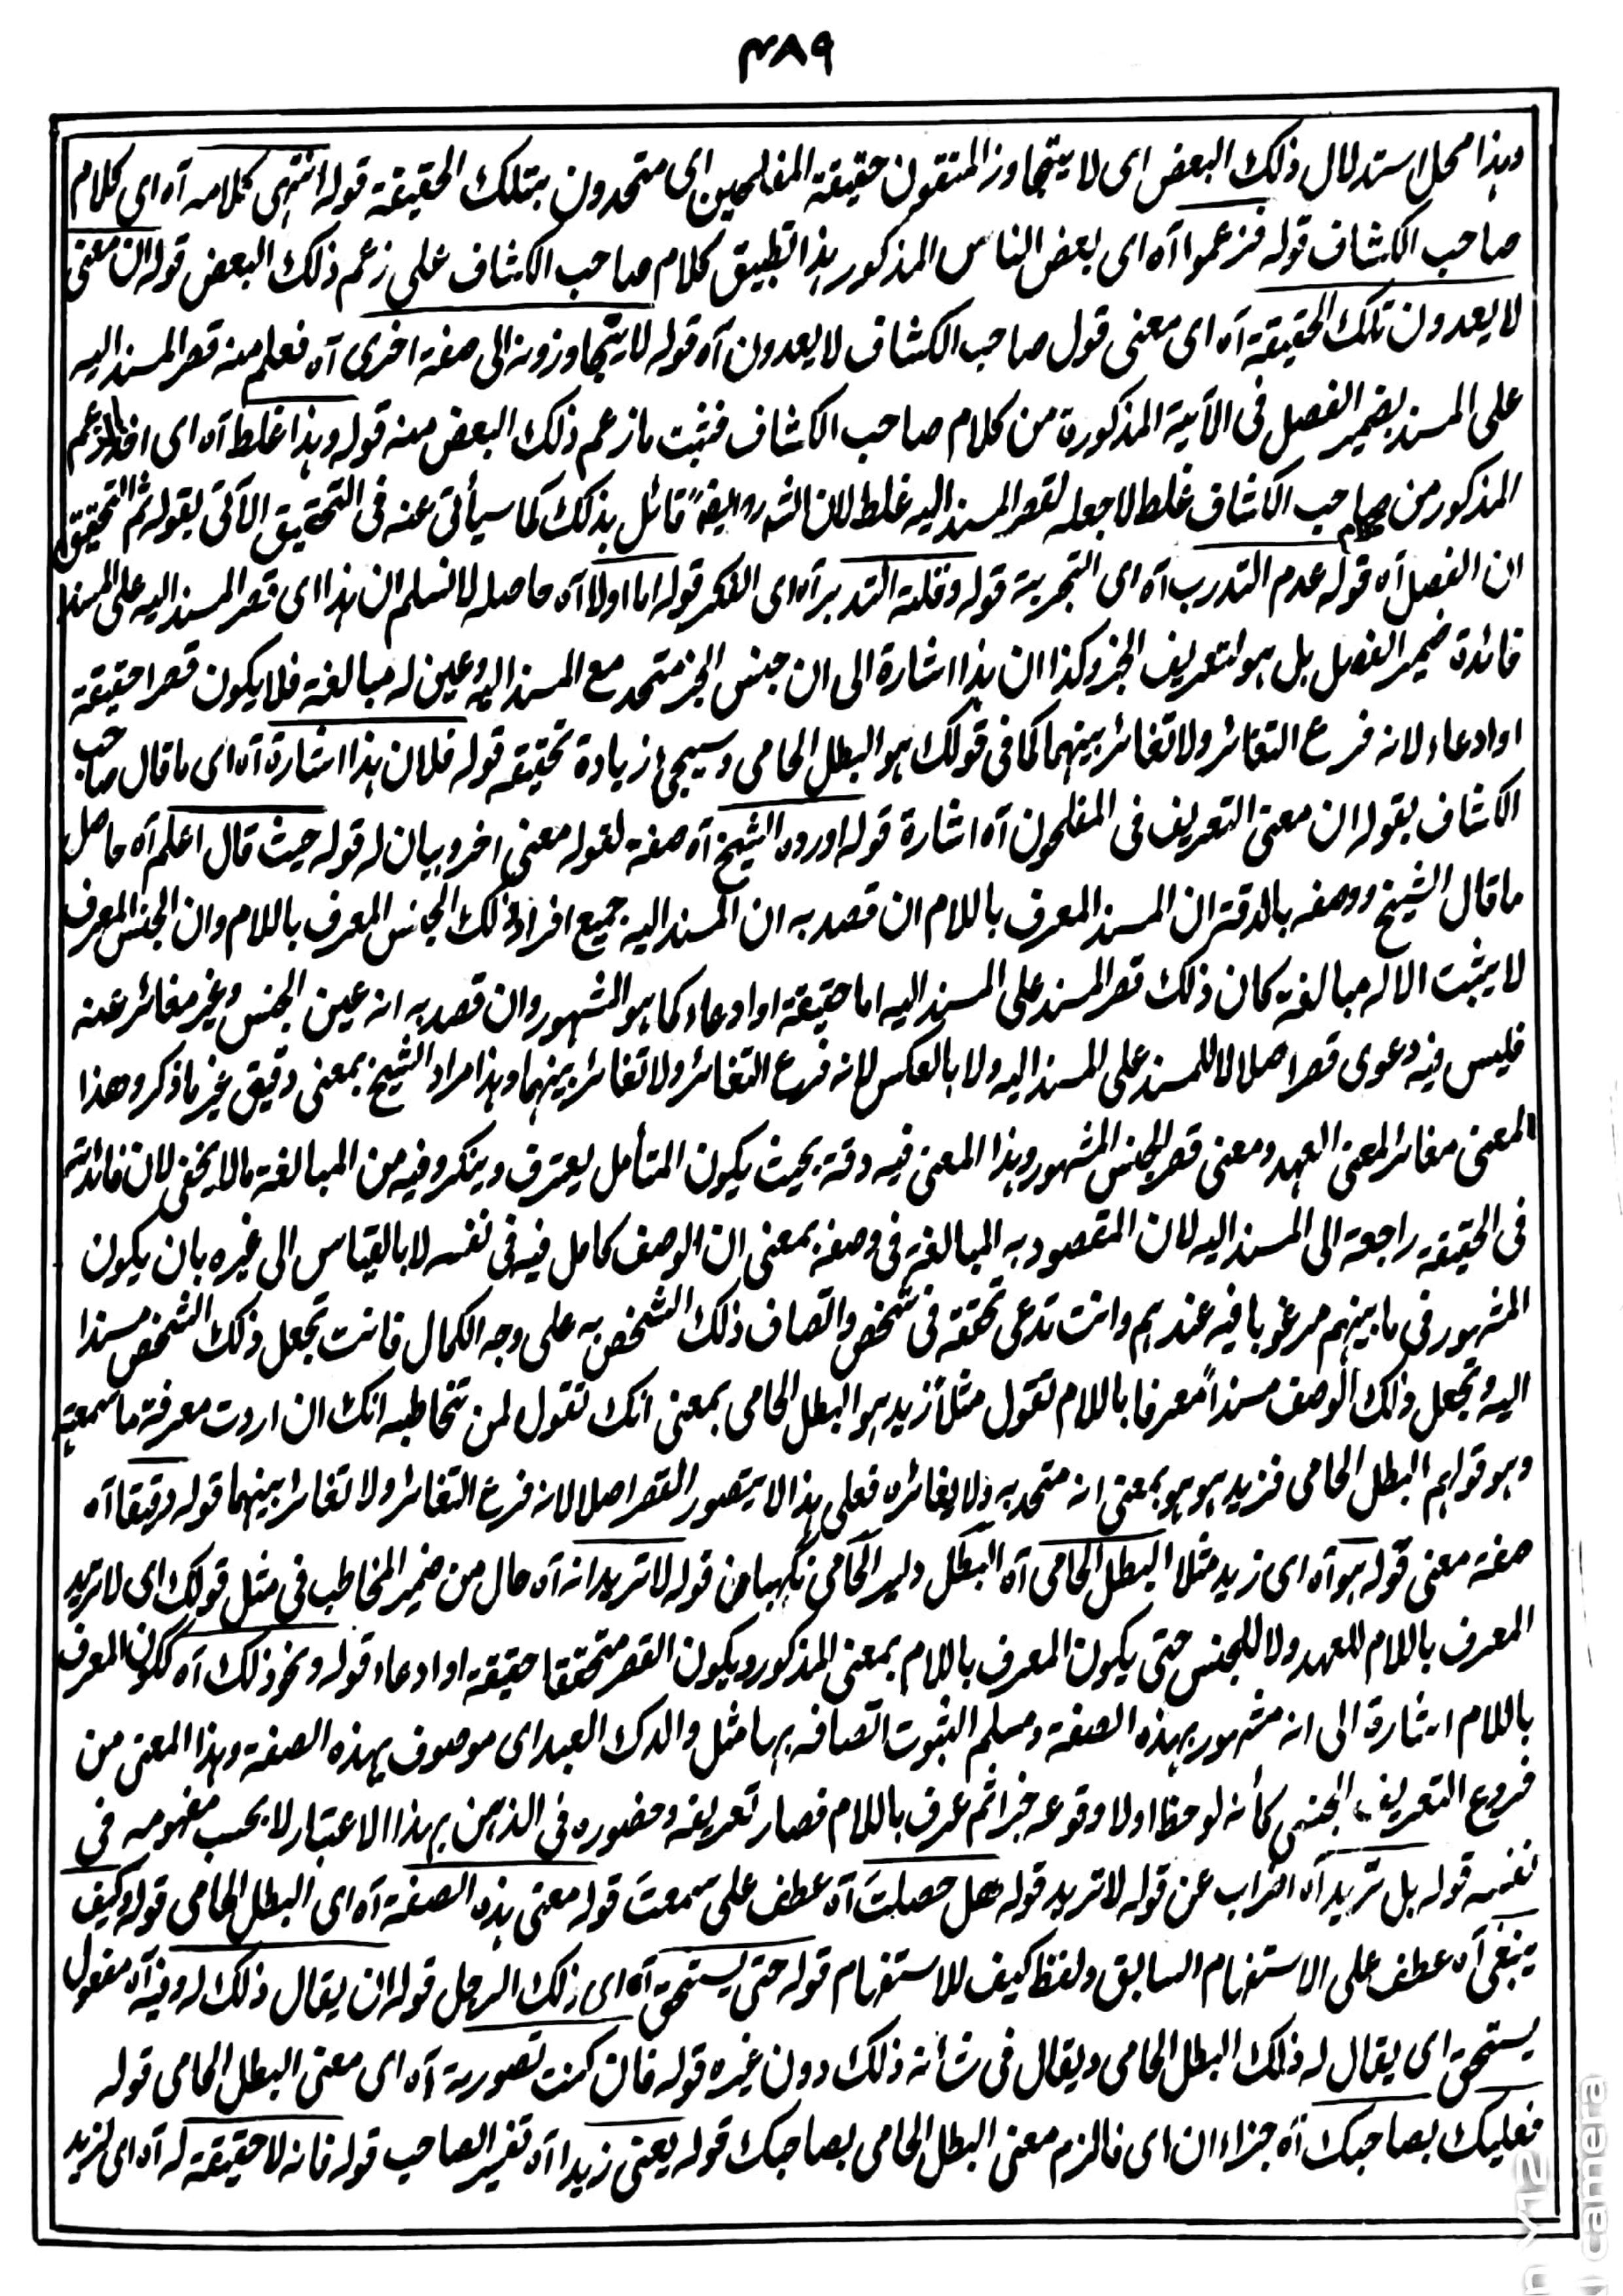 ۴۸۹
وہذا محل استدلال ذلک البعض ای لا یتجاوز المتقون حقیقة المفلحین ای متحدون بتلک الحقیقة قوله انتهى کلامه آه ای کلام
صاحب الکشاف قوله فزعموا آه ای بعض الناس المذکور ہذا تطبیق کلام صاحب الکشاف علی زعم ذلک البعض قوله ان معنی
لا یعدون تلک الحقیقة آه ای معنی قول صاحب الکشاف لا یعدون آه قوله لا یتجاوزونه الی صفة اخری آه فعلم منه قصر المسند الیه
علی المسند بضمیر الفصل فی الآیة المذکورة من کلام صاحب الکشاف فثبت ما زعم ذلک البعض منه قوله وہذا غلط آه ای
المذکور من صاحب الکشاف غلط لا جعله لقصر المسند الیه غلط لان الشه رہ ایضاً قائل بذلک کما سیأتی عنه فی التحقیق الآتی بقوله ثم التحقیق
ان الفصل آه قوله عدم التدرب آه ای التجربة قوله وقلة التدبر آه ای الفکر قوله اما اولا آه حاصله لا نسلم ان ہذا ای قصر المسند الیه علی المسند
فائدة ضمیر الفصل بل ہو لتعریف الخبر وکذا ان ہذا اشارة الی ان جنس الخبر متحد مع المسند الیه وعین له مبالغة فلا یکون قصرا حقیقة
او ادعاء لانه فرع التغائر ولا تغائر بینهما کما فی قولک ہو البطل الحامی وسیجئ زیادة تحقیقه قوله فلان ہذا اشارة آه ای ما قال صاحب
الکشاف بقوله ان معنی التعریف فی المفلحون آه اشارة قوله اورده الشیخ آه صفة لقوله معنی اخر وبیان له قوله حیث قال اعلم آه حاصل
ما قال الشیخ ووصفه بالدقة ان المسند المعرف باللام ان قصد به ان المسند الیه جمیع افراد ذلک الجنس المعرف باللام وان الجنس المعرف
لا یثبت الا له مبالغة کان ذلک قصر المسند علی المسند الیه اما حقیقة او ادعاء کما ہو المشهور وان قصد به انه عین الجنس وغیر مغائر عنه
فلیس فیه دعوی قصر اصلا لا للمسند علی المسند الیه ولا بالعکس لانه فرع التغائر ولا تغائر بینهما وہذا مراد الشیخ بمعنی دقیق غیر ما ذکر وهذا
المعنی مغائر لمعنی العهد ومعنی قصر الجنس المشهور وہذا المعنی فیه دقة بحیث یکون المتأمل یعترف وینکر وفیه من المبالغة ما لا یخفی لان فائدته
فی الحقیقة راجعة الی المسند الیه لان المقصود به المبالغة فی وصفه بمعنی ان الوصف کامل فیه فی نفسه لا بالقیاس الی غیره بان یکون
المشهور فی ما بینهم مرغوبا فیه عندہم وانت تدعی تحققه فی شخص واتصاف ذلک الشخص به علی وجه الکمال فانت تجعل ذلک الشخص مسندا
الیه وتجعل ذلک الوصف مسنداً معرفا باللام تقول مثلاً زید ہو البطل الحامی بمعنی انک تقول لمن تخاطبه انک ان اردت معرفة ما سمعته
وہو قولہم البطل الحامی فزید ہو ہو بمعنی انه متحد به ولا یغائره فعلی ہذا لا یتصور القصر اصلا لانه فرع التغائر ولا تغائر بینهما قوله دقیقا آه
صفة معنی قوله ہو آه ای زید مثلا البطل الحامی آه البطل دلیر الحامی نگہبان قوله لا ترید انه آه حال من ضمیر المخاطب فی مثل قولک ای لا ترید
المعرف باللام للعهد ولا للجنس حتی یکون المعرف باللام بمعنی المذکور ویکون القصر متحققا حقیقة او ادعاء قوله ونحو ذلک آه ککون المعرف
باللام اشارة الی انه مشهور بہذه الصفة ومسلم الثبوت اتصافه بہا مثل والدک العبد ای موصوف بہذه الصفة وہذا المعنی من
فروع التعریف الجنسی کأنه لوحظ اولا وقوعه خبرا ثم عرف باللام فصار تعریفه وحضوره فی الذہن بہذا الاعتبار لا بحسب مفهومه فی
نفسه قوله بل ترید آه اضراب عن قوله لا ترید قوله هل حصلت آه عطف علی سمعتَ قوله معنی ہذه الصفة آه ای البطل الحامی قوله وکیف
ینبغی آه عطف علی الاستفہام السابق ولفظ کیف للاستفہام قوله حتی یستحق آه ای ذلک الرجل قوله ان یقال ذلک له وفیه آه مفعول
یستحق ای یقال له ذلک البطل الحامی ویقال فی شأنه ذلک دون غیره قوله فان کنت تصوریة آه ای معنی البطل الحامی قوله
فعلیک بصاحبک آه جزاء ان ای فالزم معنی البطل الحامی بصاحبک قوله یعنی زیدا آه تفسیر الصاحب قوله فانه لا حقیقة له آه ای لزید